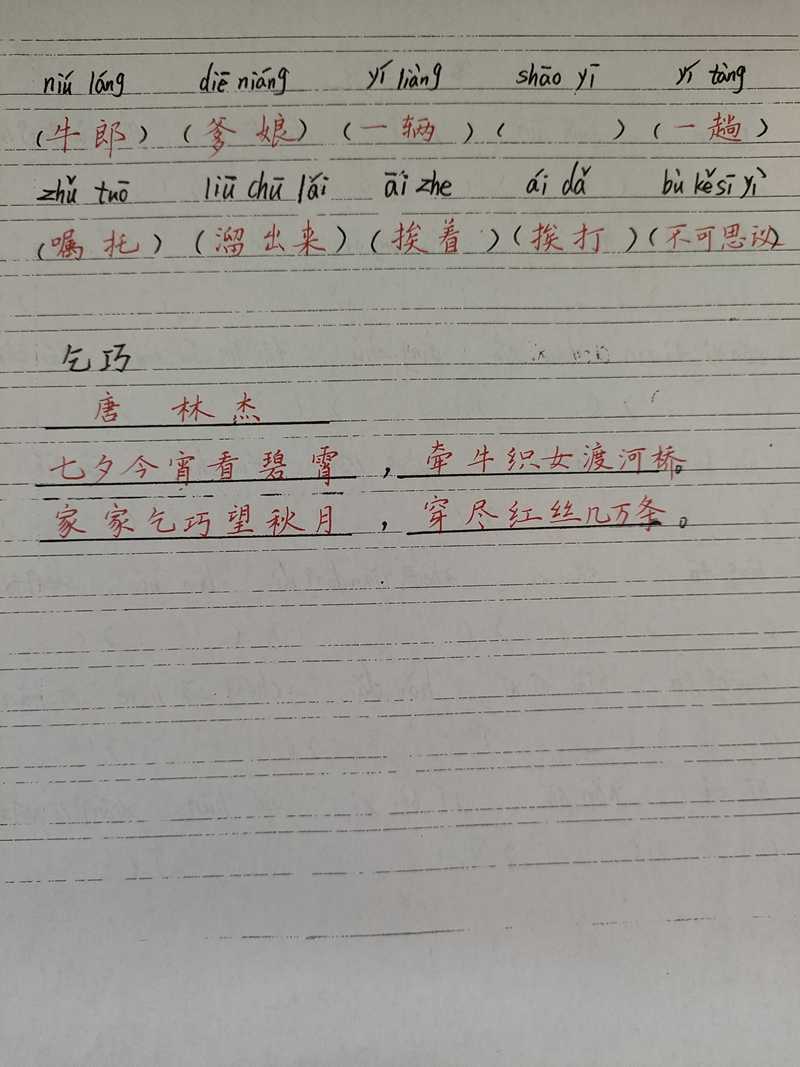 niú láng diē niáng yí liàng shāo yī yí tàng
(牛郎) (爹娘) (一辆) ( ) (一趟)
zhǔ tuō liū chū lái āi zhe ái dǎ bù kě sī yì
(嘱托) (溜出来) (挨着) (挨打) (不可思议)
乞巧
唐 林杰
七夕今宵看碧霄，牵牛织女渡河桥。
家家乞巧望秋月，穿尽红丝几万条。